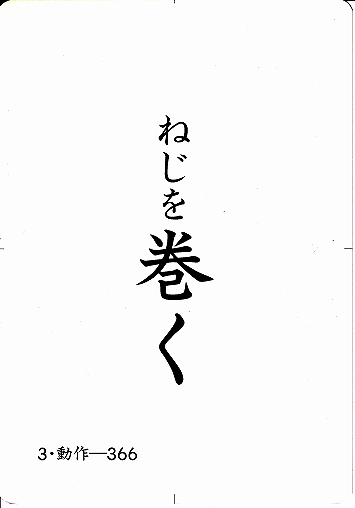 ねじを巻く
3・動作―366